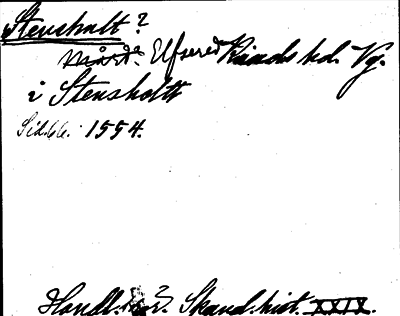 Stenshult?
Elfsered Kinds hd. Vg.
i Stensholtt
Sid. 66. 1554.
Handl. r. Skand. hist. XXIX.